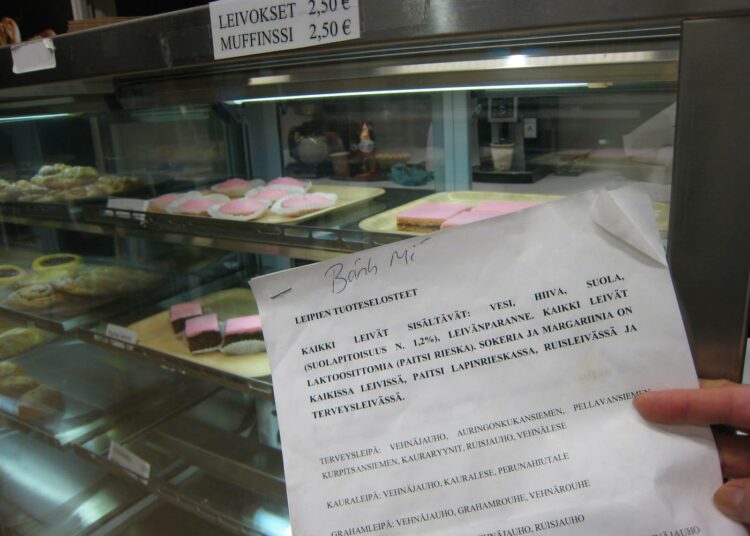 LEIVOKSET 2,50 €
MUFFINSSI 2,50 €
Bánh Mì
LEIPIEN TUOTESELOSTEET
KAIKKI LEIVÄT SISÄLTÄVÄT: VESI, HIIVA, SUOLA,
(SUOLAPITOISUUS N. 1,2%), LEIVÄNPARANNE. KAIKKI LEIVÄT
LAKTOOSITTOMIA (PAITSI RIESKA). SOKERIA JA MARGARIINIA ON
KAIKISSA LEIVISSÄ, PAITSI LAPINRIESKASSA, RUISLEIVÄSSÄ JA
TERVEYSLEIVÄSSÄ.
TERVEYSLEIPÄ: VEHNÄJAUHO, AURINGONKUKANSIEMEN, PELLAVANSIEMEN,
KURPITSANSIEMEN, KAURARYYNIT, RUISJAUHO, VEHNÄLESE
KAURALEIPÄ: VEHNÄJAUHO, KAURALESE, PERUNAHIUTALE
GRAHAMLEIPÄ: VEHNÄJAUHO, GRAHAMROUHE, VEHNÄROUHE
VEHNÄJAUHO, RUISJAUHO